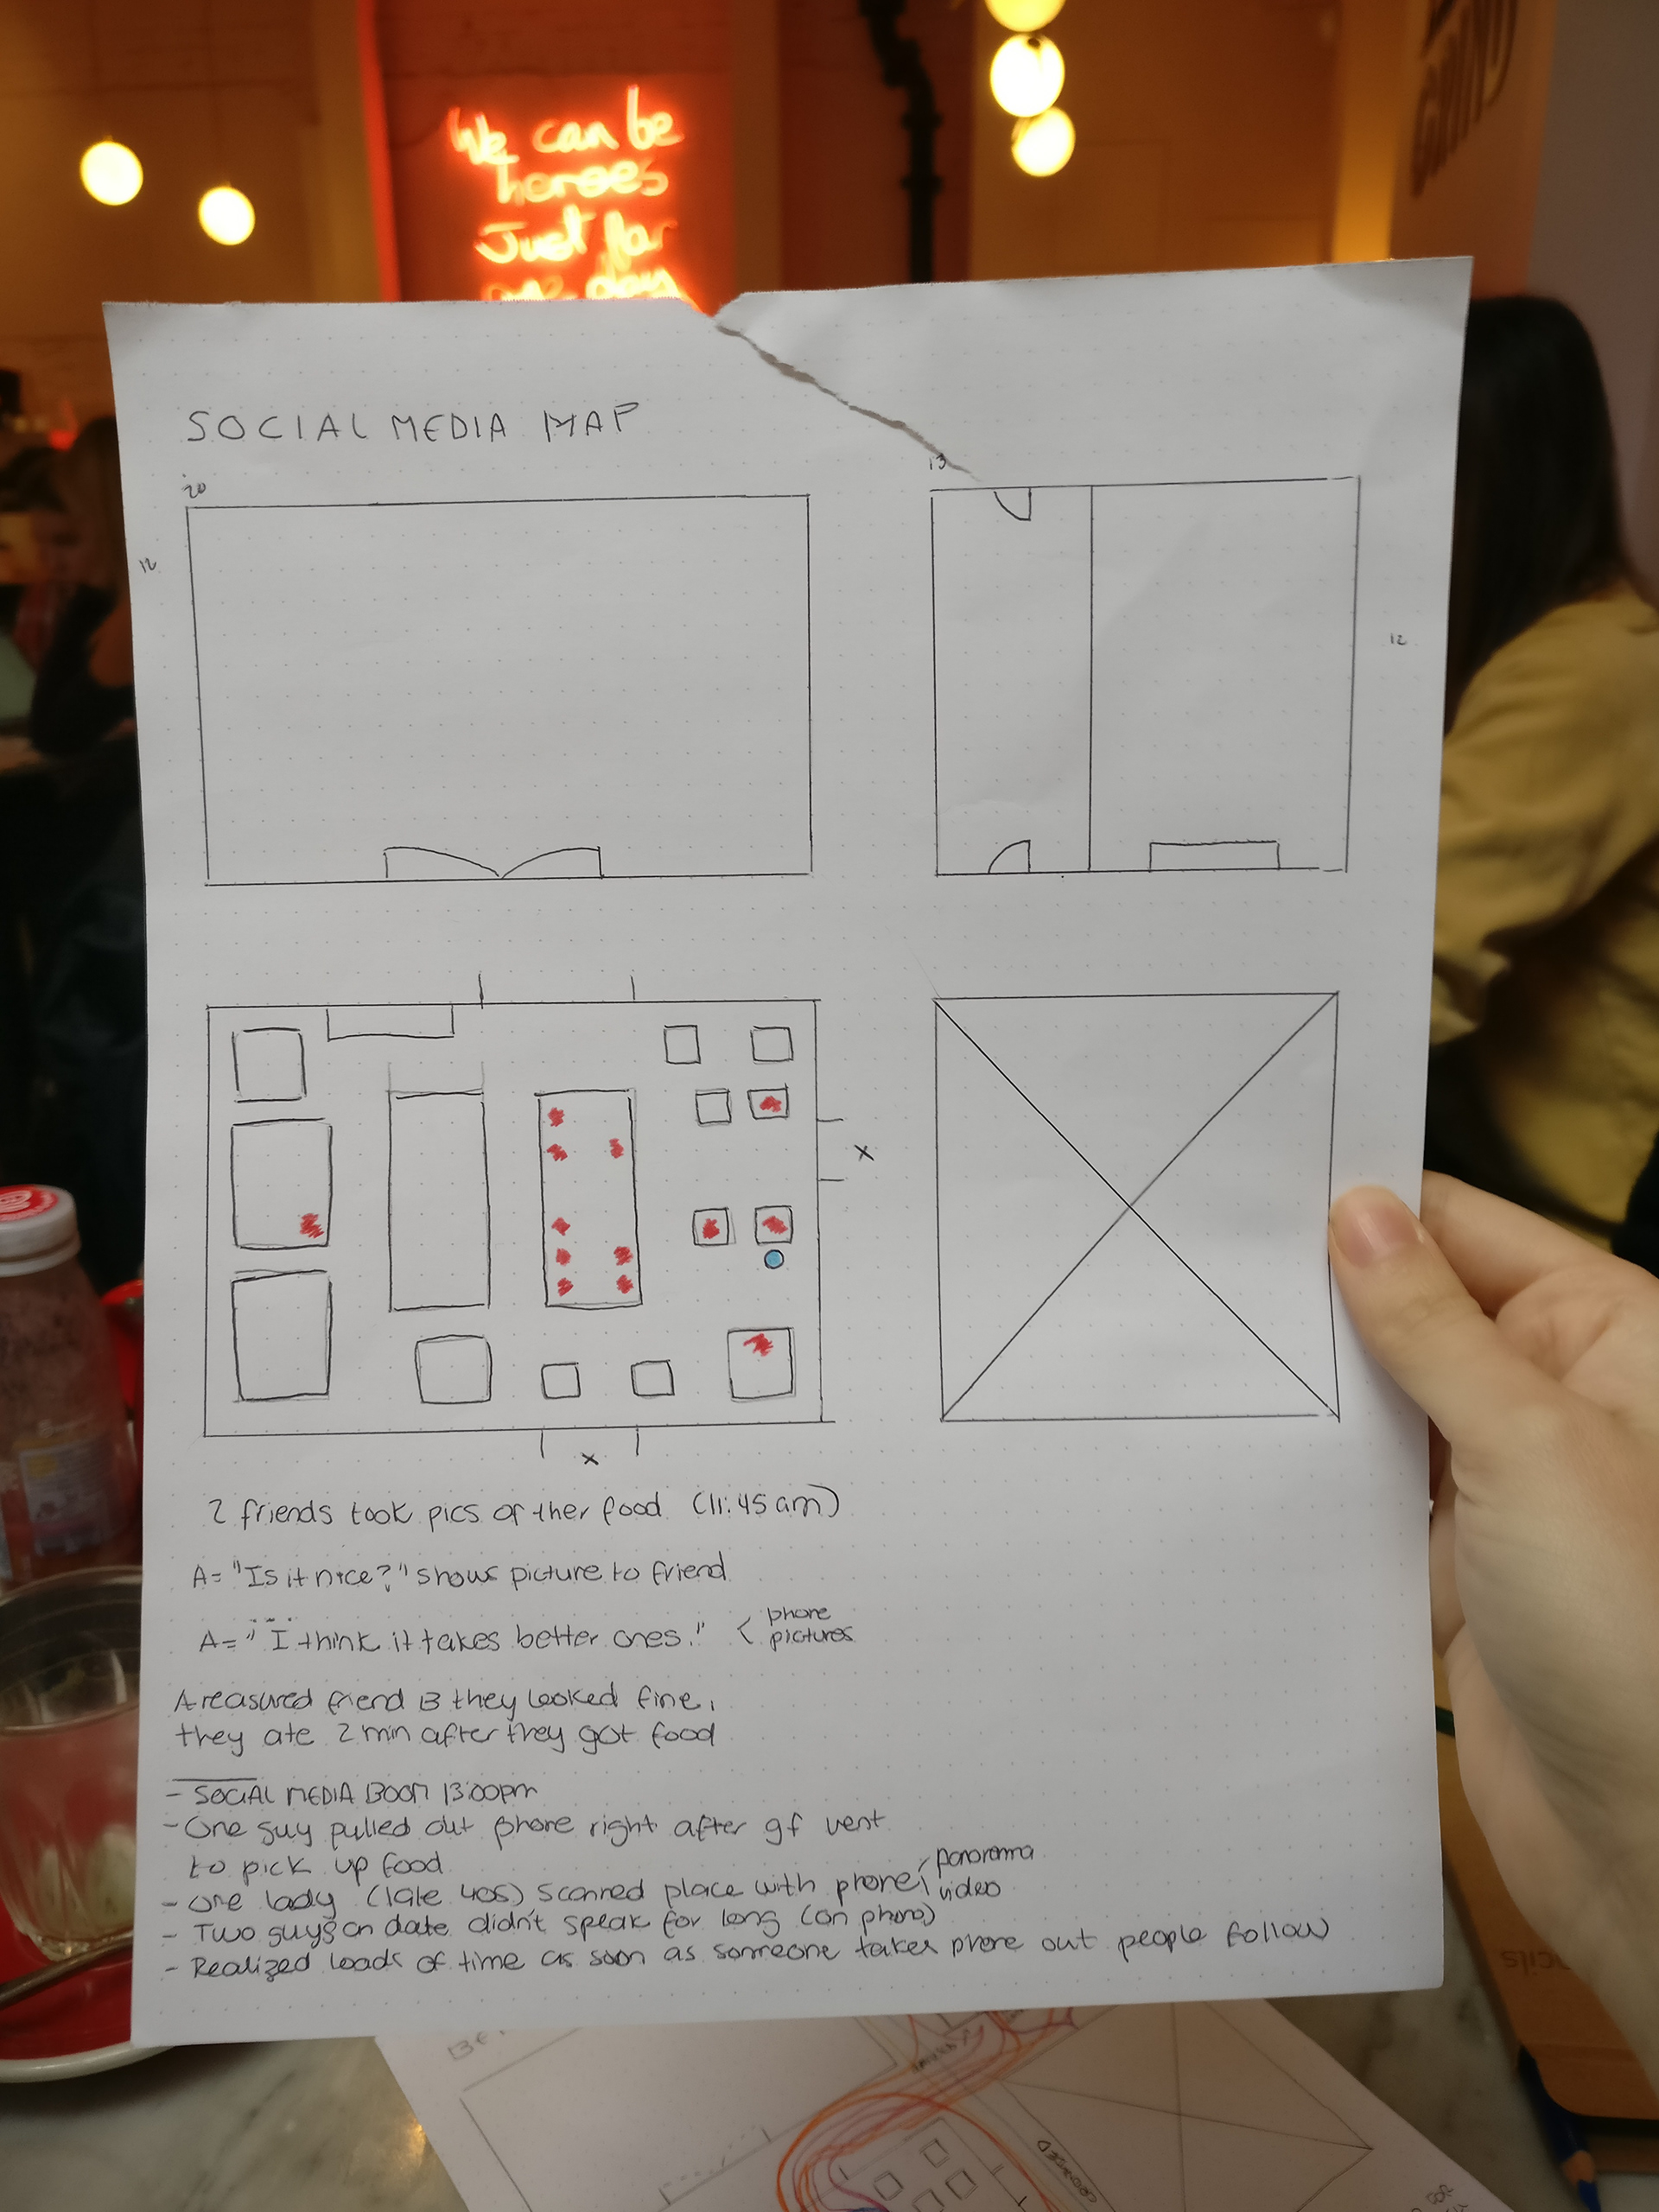 We can be
heroes
Just for
one day
GRIND
SOCIAL MEDIA MAP
20
13
12
12
X
X
2 friends took pics of ther food (11:45am)
A= "Is it nice?" shows picture to friend
...
A= "I think it takes better ones." < phone
pictures
A reasured friend B they looked fine,
they ate 2 min after they got food
- SOCIAL MEDIA BOOM 13:00pm
- One guy pulled out phone right after gf went
to pick up food
- One lady (late 40s) scanned place with phone, panorama
video
- Two guys on date didn't speak for long (on phone)
- Realized loads of time as soon as someone takes phone out people follow